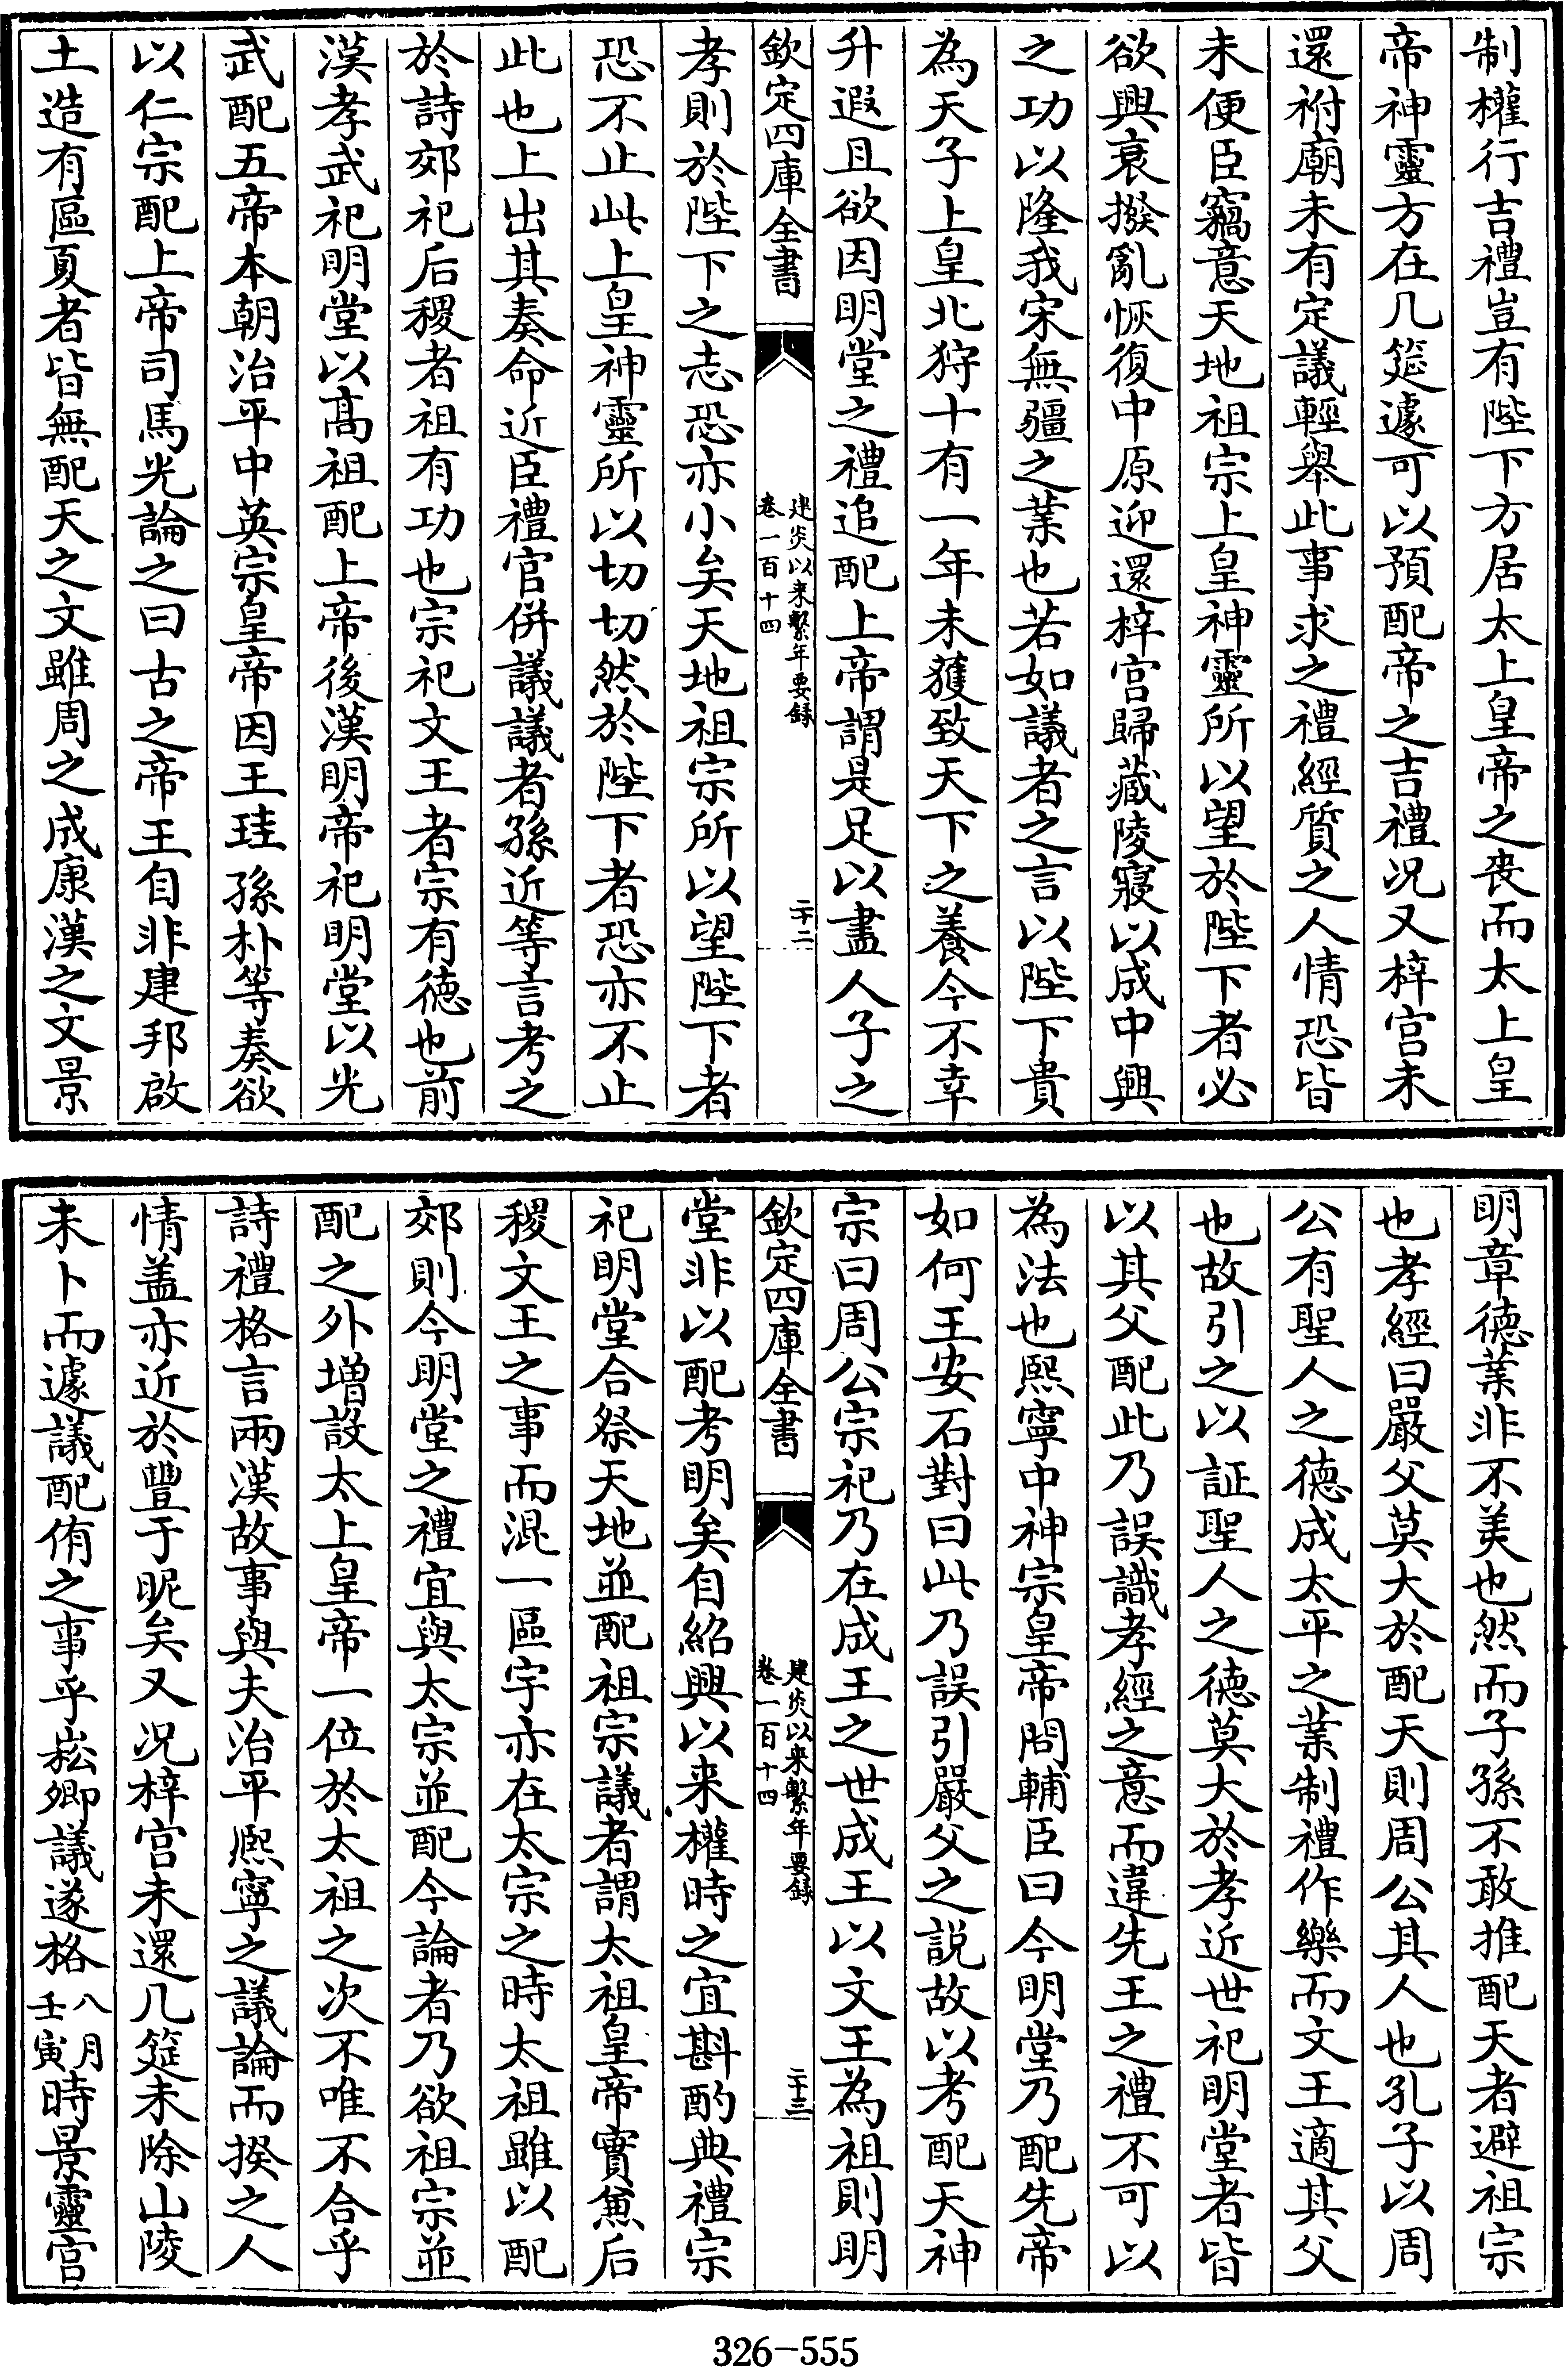 制權行吉禮豈有陛下方居太上皇帝之喪而太上皇
帝神靈方在几筵遽可以預配帝之吉禮况又梓宫未
還祔廟未有定議輕舉此事求之禮經質之人情恐皆
未便臣竊意天地祖宗上皇神靈所以望於陛下者必
欲興衰撥亂恢復中原迎還梓宫歸藏陵寢以成中興
之功以隆我宋無疆之業也若如議者之言以陛下貴
為天子上皇北狩十有一年未獲致天下之養今不幸
升遐且欲因明堂之禮追配上帝謂是足以盡人子之
欽定四庫全書
建炎以来繫年要録
卷一百十四
二十二
孝則於陛下之志恐亦小矣天地祖宗所以望陛下者
恐不止此上皇神靈所以切切然於陛下者恐亦不止
此也上出其奏命近臣禮官併議議者孫近等言考之
於詩郊祀后稷者祖有功也宗祀文王者宗有德也前
漢孝武祀明堂以髙祖配上帝後漢明帝祀明堂以光
武配五帝本朝治平中英宗皇帝因王珪孫朴等奏欲
以仁宗配上帝司馬光論之曰古之帝王自非建邦啟
土造有區夏者皆無配天之文雖周之成康漢之文景
明章德業非不美也然而子孫不敢推配天者避祖宗
也孝經曰嚴父莫大於配天則周公其人也孔子以周
公有聖人之德成太平之業制禮作樂而文王適其父
也故引之以証聖人之德莫大於孝近世祀明堂者皆
以其父配此乃誤識孝經之意而違先王之禮不可以
為法也熙寧中神宗皇帝問輔臣曰今明堂乃配先帝
如何王安石對曰此乃誤引嚴父之説故以考配天神
宗曰周公宗祀乃在成王之世成王以文王為祖則明
欽定四庫全書
建炎以来繫年要録
卷一百十四
二十三
堂非以配考明矣自紹興以来權時之宜斟酌典禮宗
祀明堂合祭天地並配祖宗議者謂太祖皇帝實兼后
稷文王之事而混一區宇亦在太宗之時太祖雖以配
郊則今明堂之禮宜與太宗並配今論者乃欲祖宗並
配之外增設太上皇帝一位於太祖之次不唯不合乎
詩禮格言兩漢故事與夫治平熙寧之議論而揆之人
情盖亦近於豐于昵矣又况梓宫未還几筵未除山陵
未卜而遽議配侑之事乎崧卿議遂格八月壬寅時景靈宫
326-555